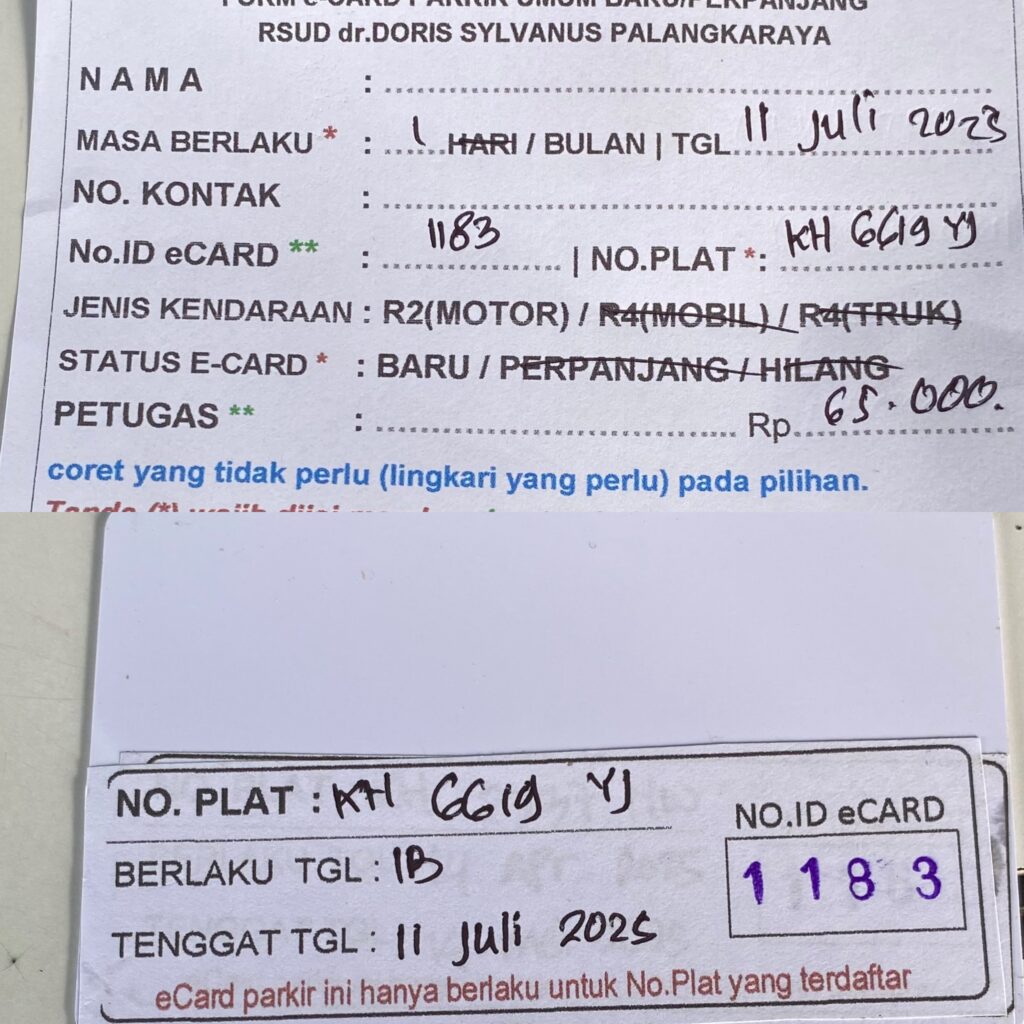 FORM e-CARD PARKIR UMUM BARU/PERPANJANG
RSUD dr.DORIS SYLVANUS PALANGKARAYA
N A M A :
MASA BERLAKU * : 1 HARI / BULAN | TGL 11 Juli 2025
NO. KONTAK :
No.ID eCARD ** : 1183 | NO.PLAT *: KH 6619 YJ
JENIS KENDARAAN : R2(MOTOR) / R4(MOBIL) / R4(TRUK)
STATUS E-CARD * : BARU / PERPANJANG / HILANG
PETUGAS ** : Rp 65.000.
coret yang tidak perlu (lingkari yang perlu) pada pilihan.
NO. PLAT : KH 6619 YJ
NO.ID eCARD
1183
BERLAKU TGL : 1B
TENGGAT TGL : 11 Juli 2025
eCard parkir ini hanya berlaku untuk No.Plat yang terdaftar